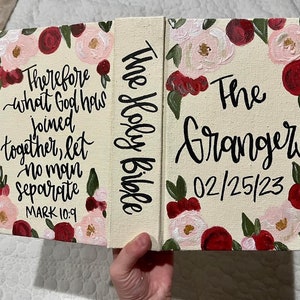 Therefore
what God has
joined
together, let
no man
separate
MARK 10:9
The Holy Bible
The
Grangers
02/25/23